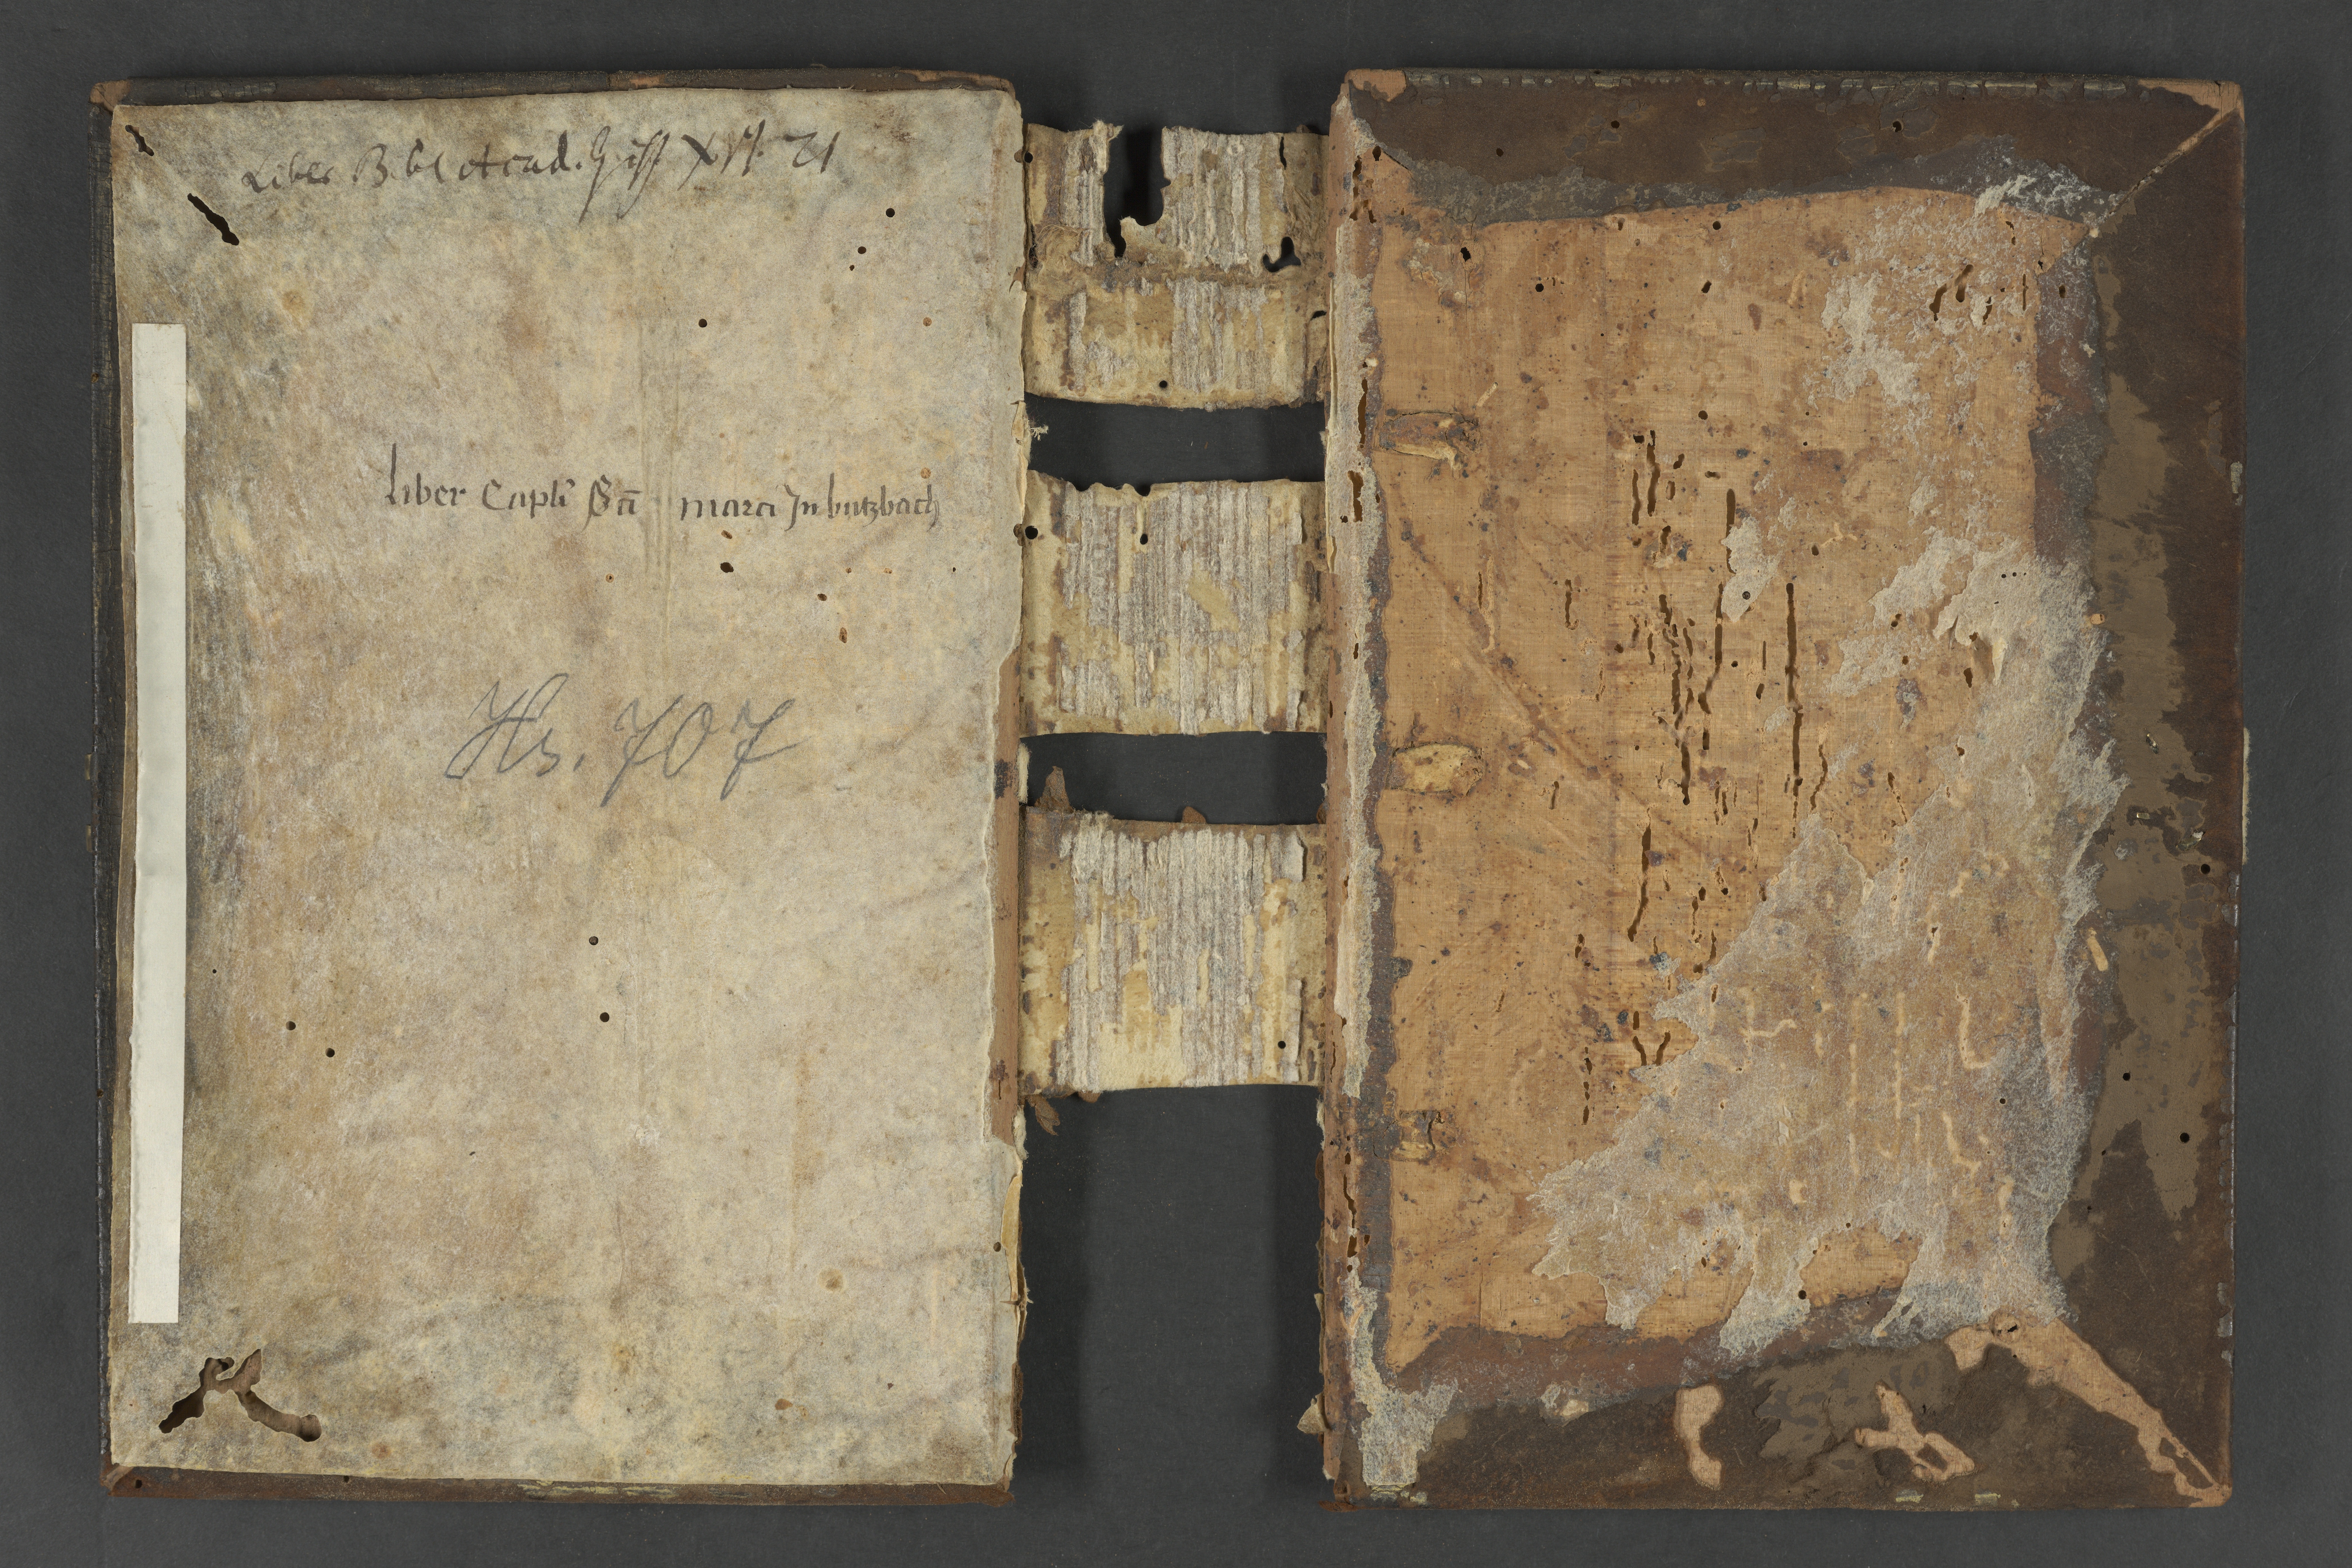 Liber Bibl Acad. Giss XVI. 21
liber Capli Sti marci In butzbach
Hs. 707